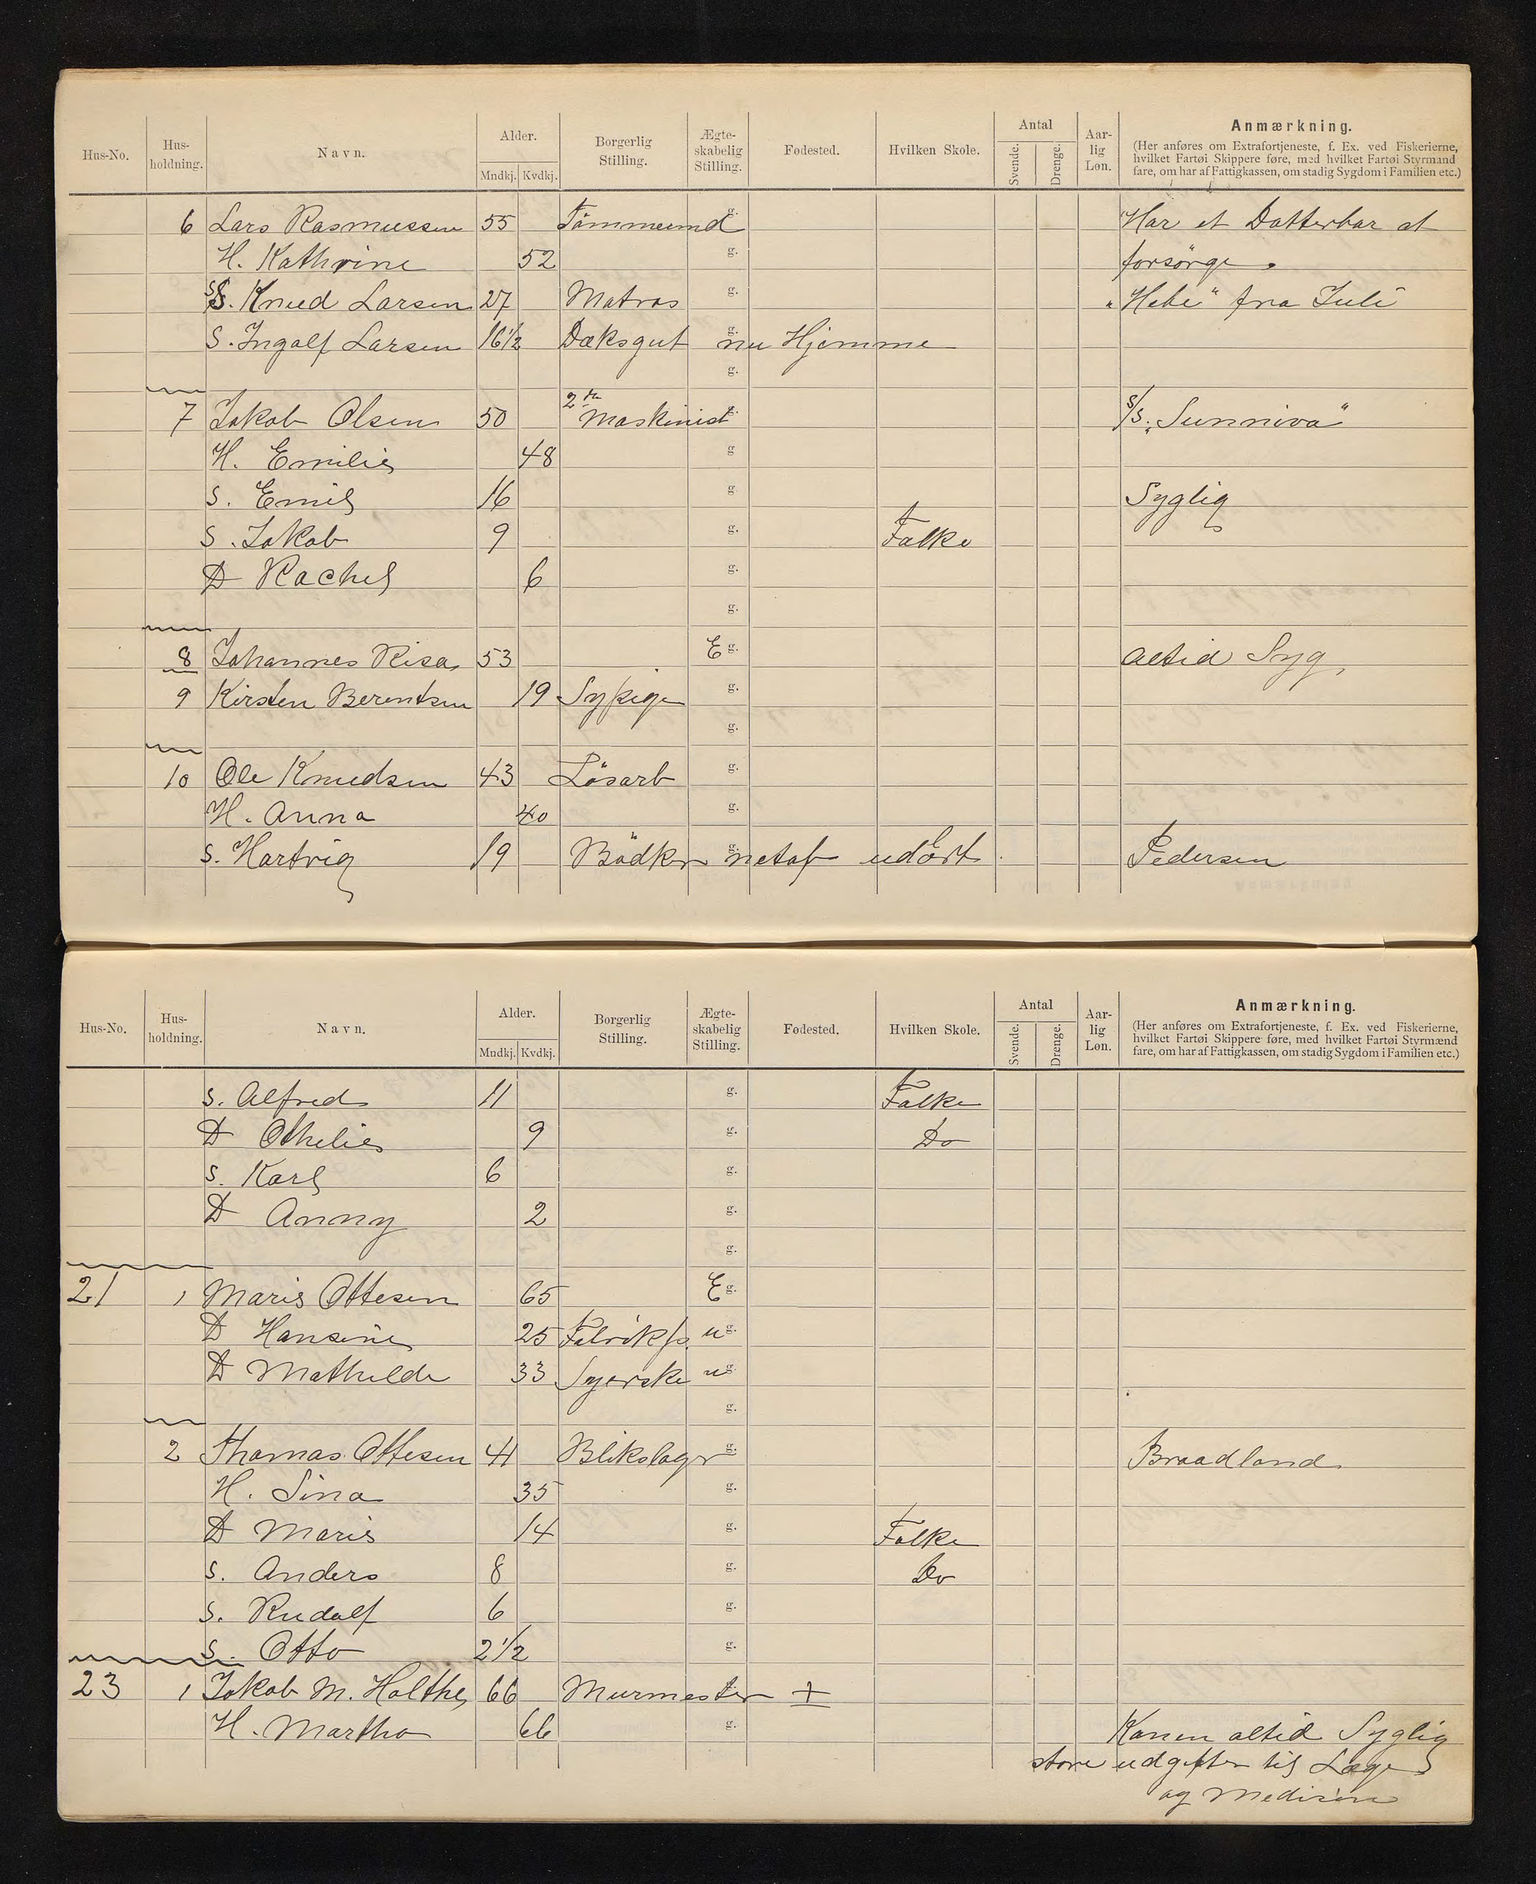 Hus-No. Hus-holdning. Navn. Alder. Mndkj. Kvdkj. Borgerlig Stilling. Ægte-skabelig Stilling. Fødested. Hvilken Skole. Antal Svende. Drenge. Aar-lig Løn. Anmærkning.
(Her anføres om Extrafortjeneste, f. Ex. ved Fiskerierne,
hvilket Fartøi Skippere føre, med hvilket Fartøi Styrmænd
fare, om har af Fattigkassen, om stadig Sygdom i Familien etc.)
6 Lars Rasmussen 55 Tömmermd g. Har et Datterbar at
H. Kathrine 52 g. forsörge.
S. Knud Larsen 27 Matros g. "Hebe" fra Juli
S. Ingolf Larsen 16 1/2 Dæksgut g. nu Hjemme
g.
7 Jakob Olsen 50 2den Maskinist g. S/S. "Sunniva"
H. Emilie 48 g
S. Emil 16 g Syglig
S. Jakob 9 g. Folke
D Rachel 6 g.
g.
8 Johannes Risa 53 E g. altid Syg,
9 Kirsten Berentsen 19 Sypige g.
g.
10 Ole Knudsen 43 Lösarb g.
H. Anna 40 g.
S. Hartvig 19 Bödker g. netop udlært Pedersen
Hus-No. Hus-holdning. Navn. Alder. Mndkj. Kvdkj. Borgerlig Stilling. Ægte-skabelig Stilling. Fødested. Hvilken Skole. Antal Svende. Drenge. Aar-lig Løn. Anmærkning.
(Her anføres om Extrafortjeneste, f. Ex. ved Fiskerierne,
hvilket Fartøi Skippere føre, med hvilket Fartøi Styrmænd
fare, om har af Fattigkassen, om stadig Sygdom i Familien etc.)
S. Alfred 11 g. Folke
D Othelie 9 g. Do
S. Karl 6 g.
D Anny 2 g.
g.
21 1 Marie Ottesen 65 E g.
D Hansine 25 Fabrikp. u g.
D Mathilde 33 Syerske u g.
g.
2 Thomas Ottesen 41 Blikslager g. Braadland
H. Sina 35 g.
D Marie 14 g. Folke
S. Anders 8 g. Do
S. Rudolf 6 g.
S. Otto 2 1/2 g.
23 1 Jakob M. Holthe 66 Murmester g. +
H. Martha 66 g. Konen altid Syglig
store udgifter til Læge
og Medisin